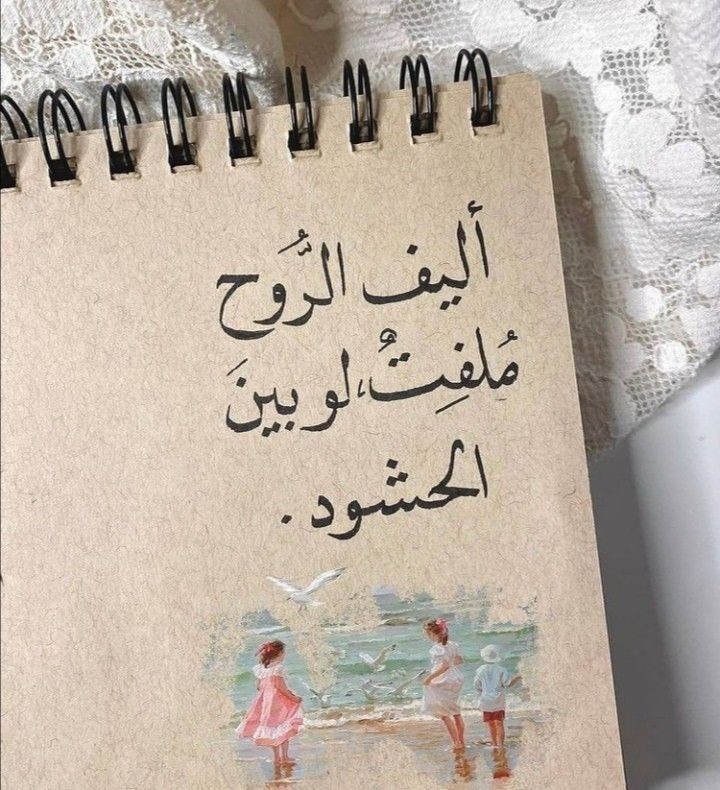 أليف الرُّوح
مُلفِتُ،لو بينَ
الحشود.